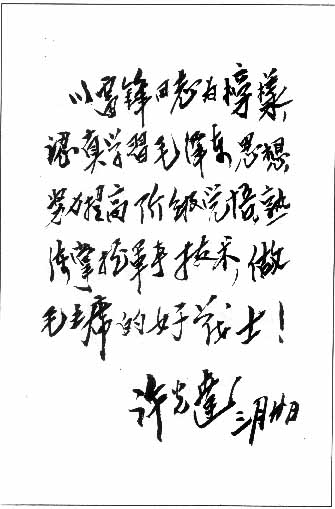 以雷锋同志为榜樣,
認真学習毛澤東思想,
努力提高阶级觉悟,熟
练掌握軍事技术,做
毛主席的好战士!
许光達 三月廿日